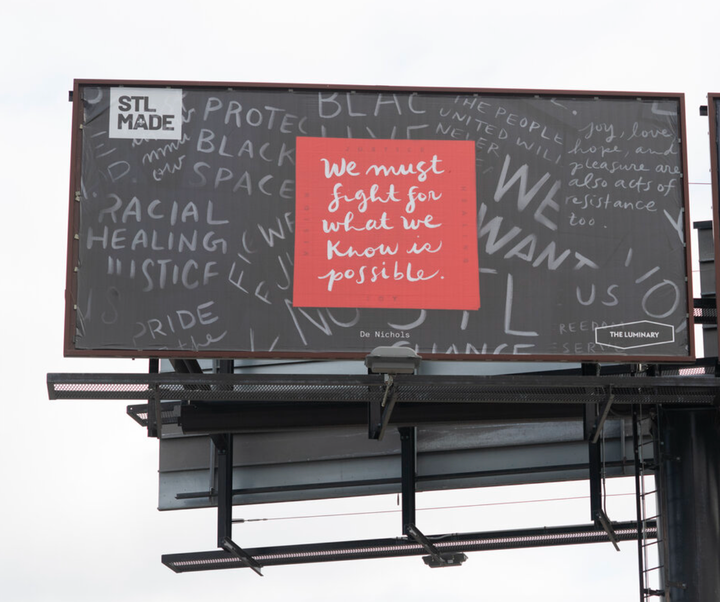 STL
MADE
PROTEC
BLACK
SPACE
RACIAL
HEALING
JUSTICE
PRIDE
the
BLAC
THE PEOPLE
UNITED WILL
NEVER
WE
WANT
US
joy, love,
hope, and
pleasure are
also acts of
resistance
too.
We must
fight for
what we
know is
possible.
NO
STL
De Nichols
THE LUMINARY